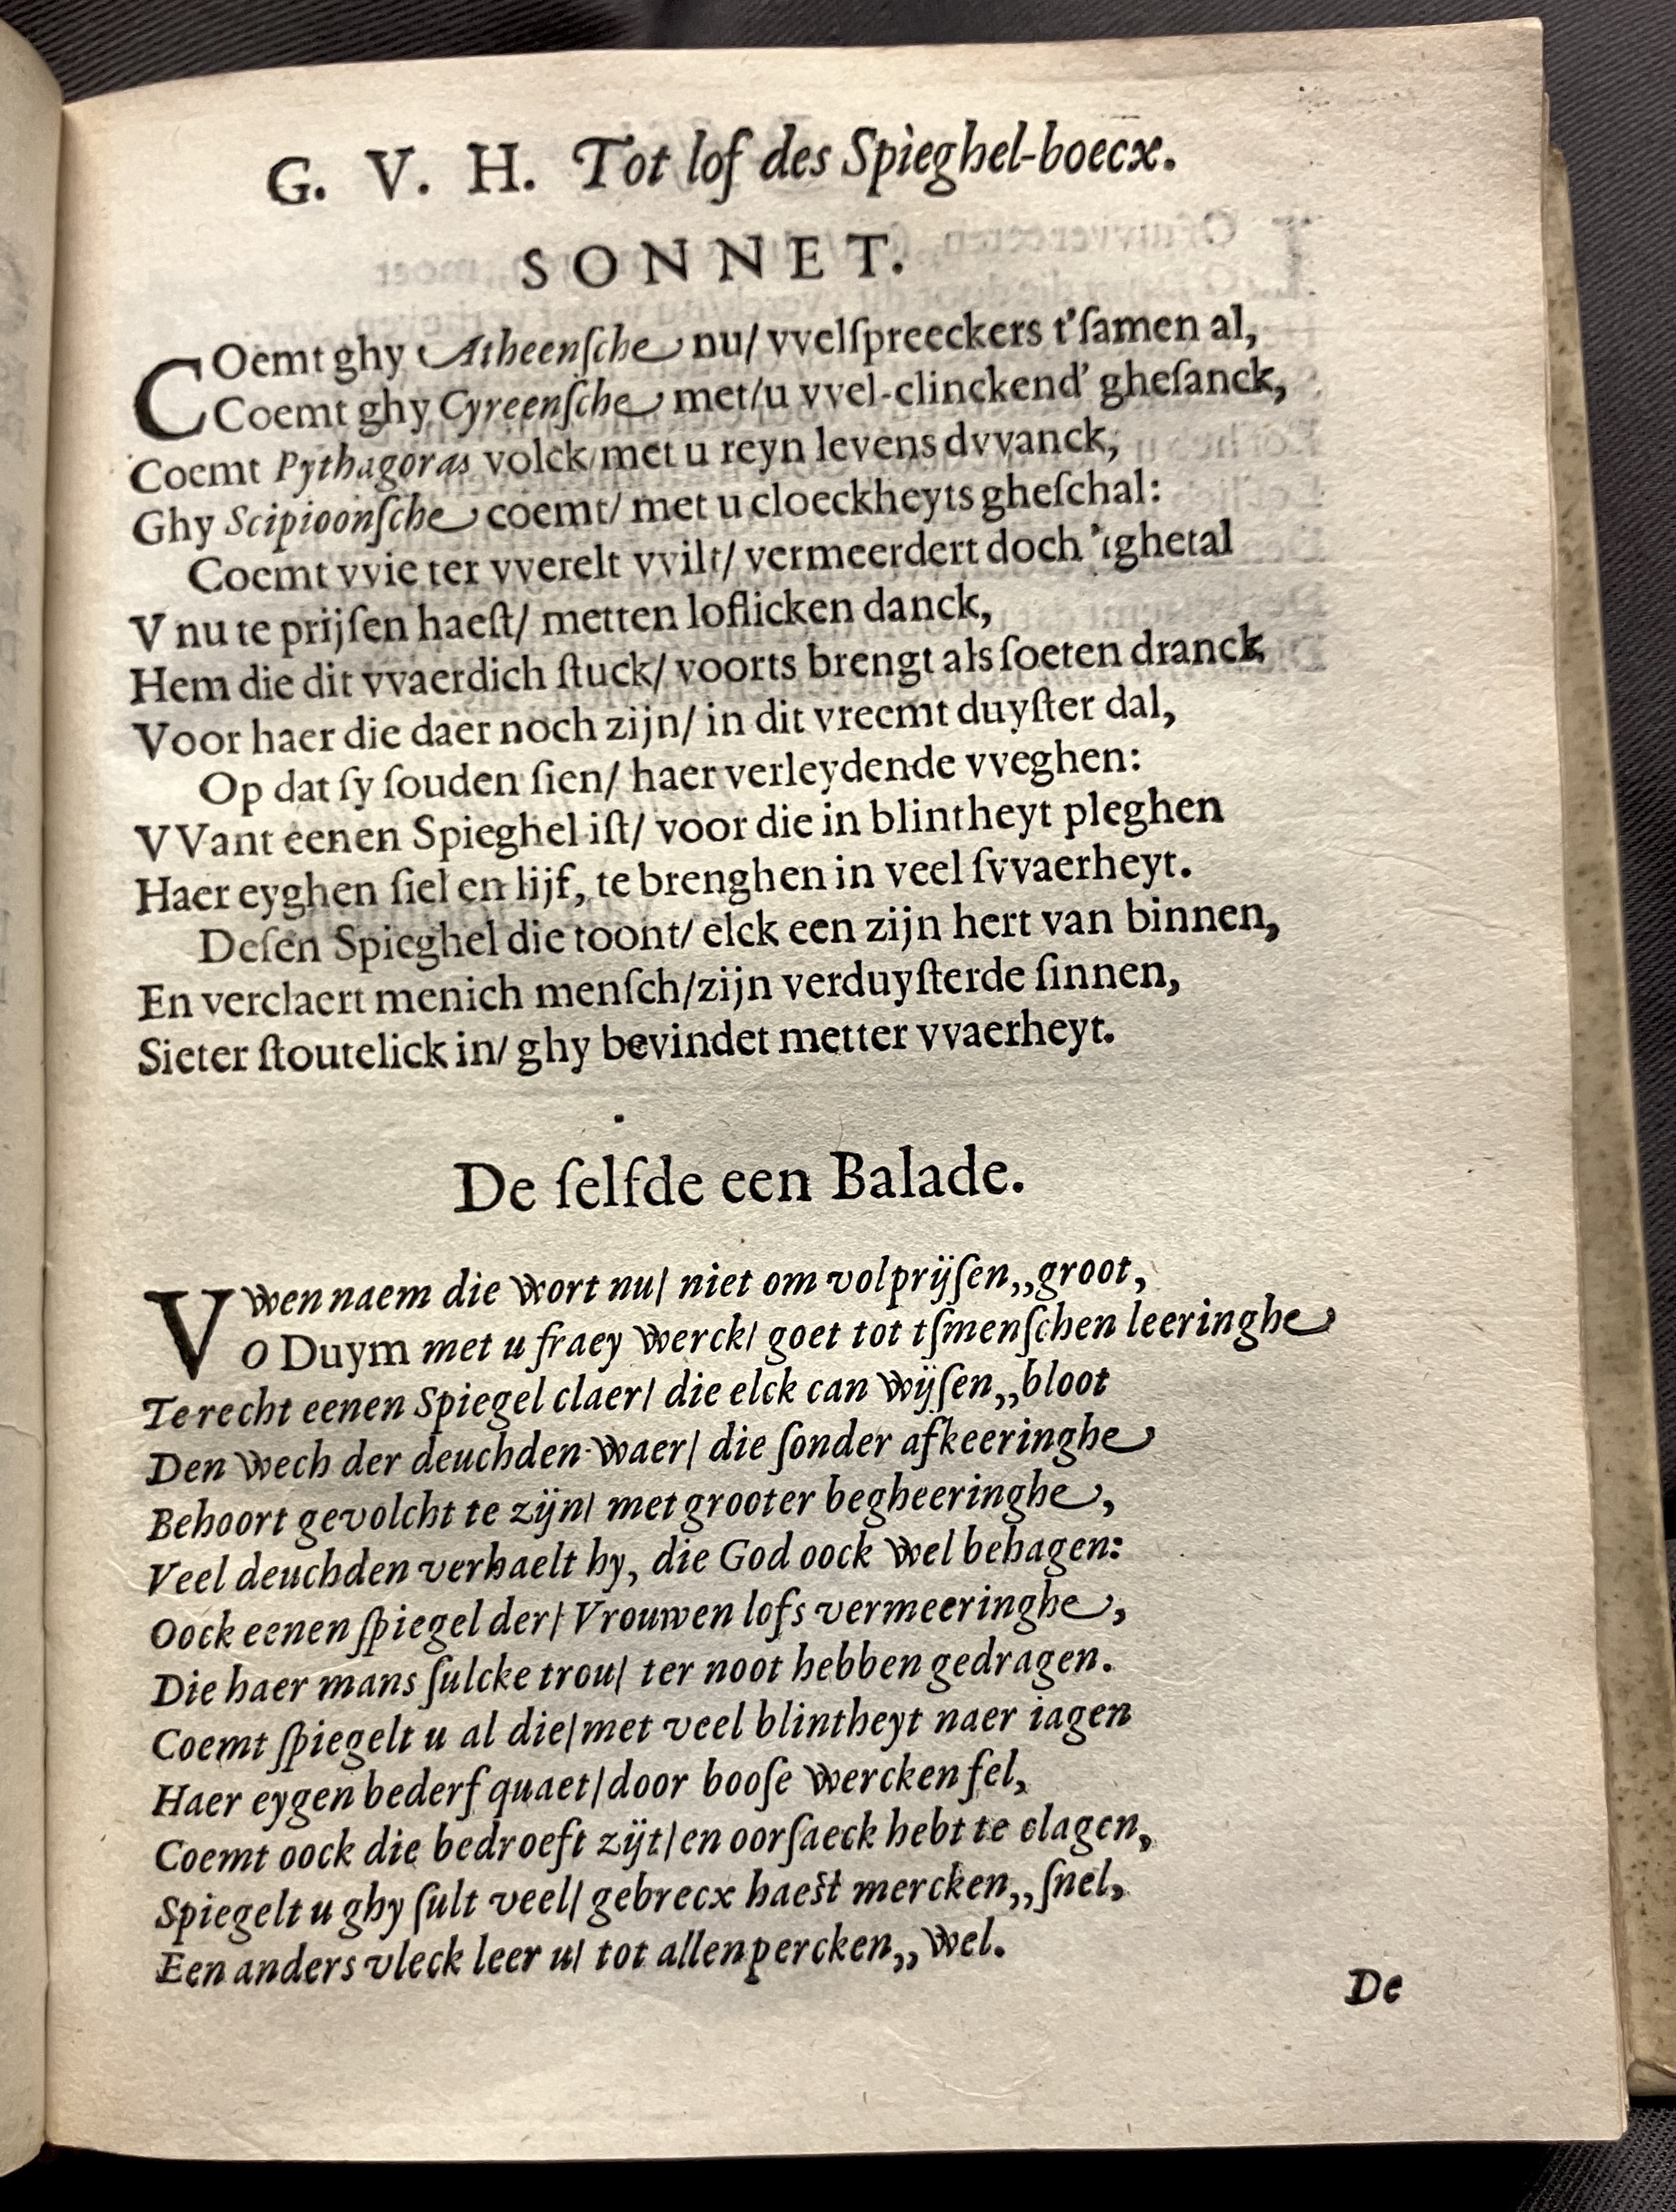 G. V. H. Tot lof des Spieghel-boecx.
SONNET.
COemt ghy Atheenſche nu/ vvelſpreeckers t'ſamen al,
Coemt ghy Cyreenſche met/u vvel-clinckend' gheſanck,
Coemt Pythagoras volck/met u reyn levens dvvanck,
Ghy Scipioonſche coemt/ met u cloeckheyts gheſchal:
Coemt vvie ter vverelt vvilt/ vermeerdert doch 'tghetal
V nu te prijſen haeſt/ metten loflicken danck,
Hem die dit vvaerdich ſtuck/ voorts brengt als ſoeten dranck,
Voor haer die daer noch zijn/ in dit vreemt duyſter dal,
Op dat ſy ſouden ſien/ haer verleydende vveghen:
VVant eenen Spieghel iſt/ voor die in blintheyt pleghen
Haer eyghen ſiel en lijf, te brenghen in veel ſvvaerheyt.
Deſen Spieghel die toont/ elck een zijn hert van binnen,
En verclaert menich menſch/zijn verduyſterde ſinnen,
Sieter ſtoutelick in/ ghy bevindet metter vvaerheyt.
De ſelfde een Balade.
VWen naem die wort nu/ niet om volprijſen,,groot,
o Duym met u fraey werck/ goet tot tſmenſchen leeringhe
Te recht eenen Spiegel claer/ die elck can wijſen,,bloot
Den wech der deuchden waer/ die ſonder afkeeringhe
Behoort gevolcht te zijn/ met grooter begheeringhe,
Veel deuchden verhaelt hy, die God oock wel behagen:
Oock eenen ſpiegel der/ Vrouwen lofs vermeeringhe,
Die haer mans ſulcke trou/ ter noot hebben gedragen.
Coemt ſpiegelt u al die/met veel blintheyt naer iagen
Haer eygen bederf quaet/door booſe wercken fel,
Coemt oock die bedroeft zijt/en oorſaeck hebt te clagen,
Spiegelt u ghy ſult veel/ gebrecx haeſt mercken,,ſnel,
Een anders vleck leer u/ tot allen percken,,wel.
De